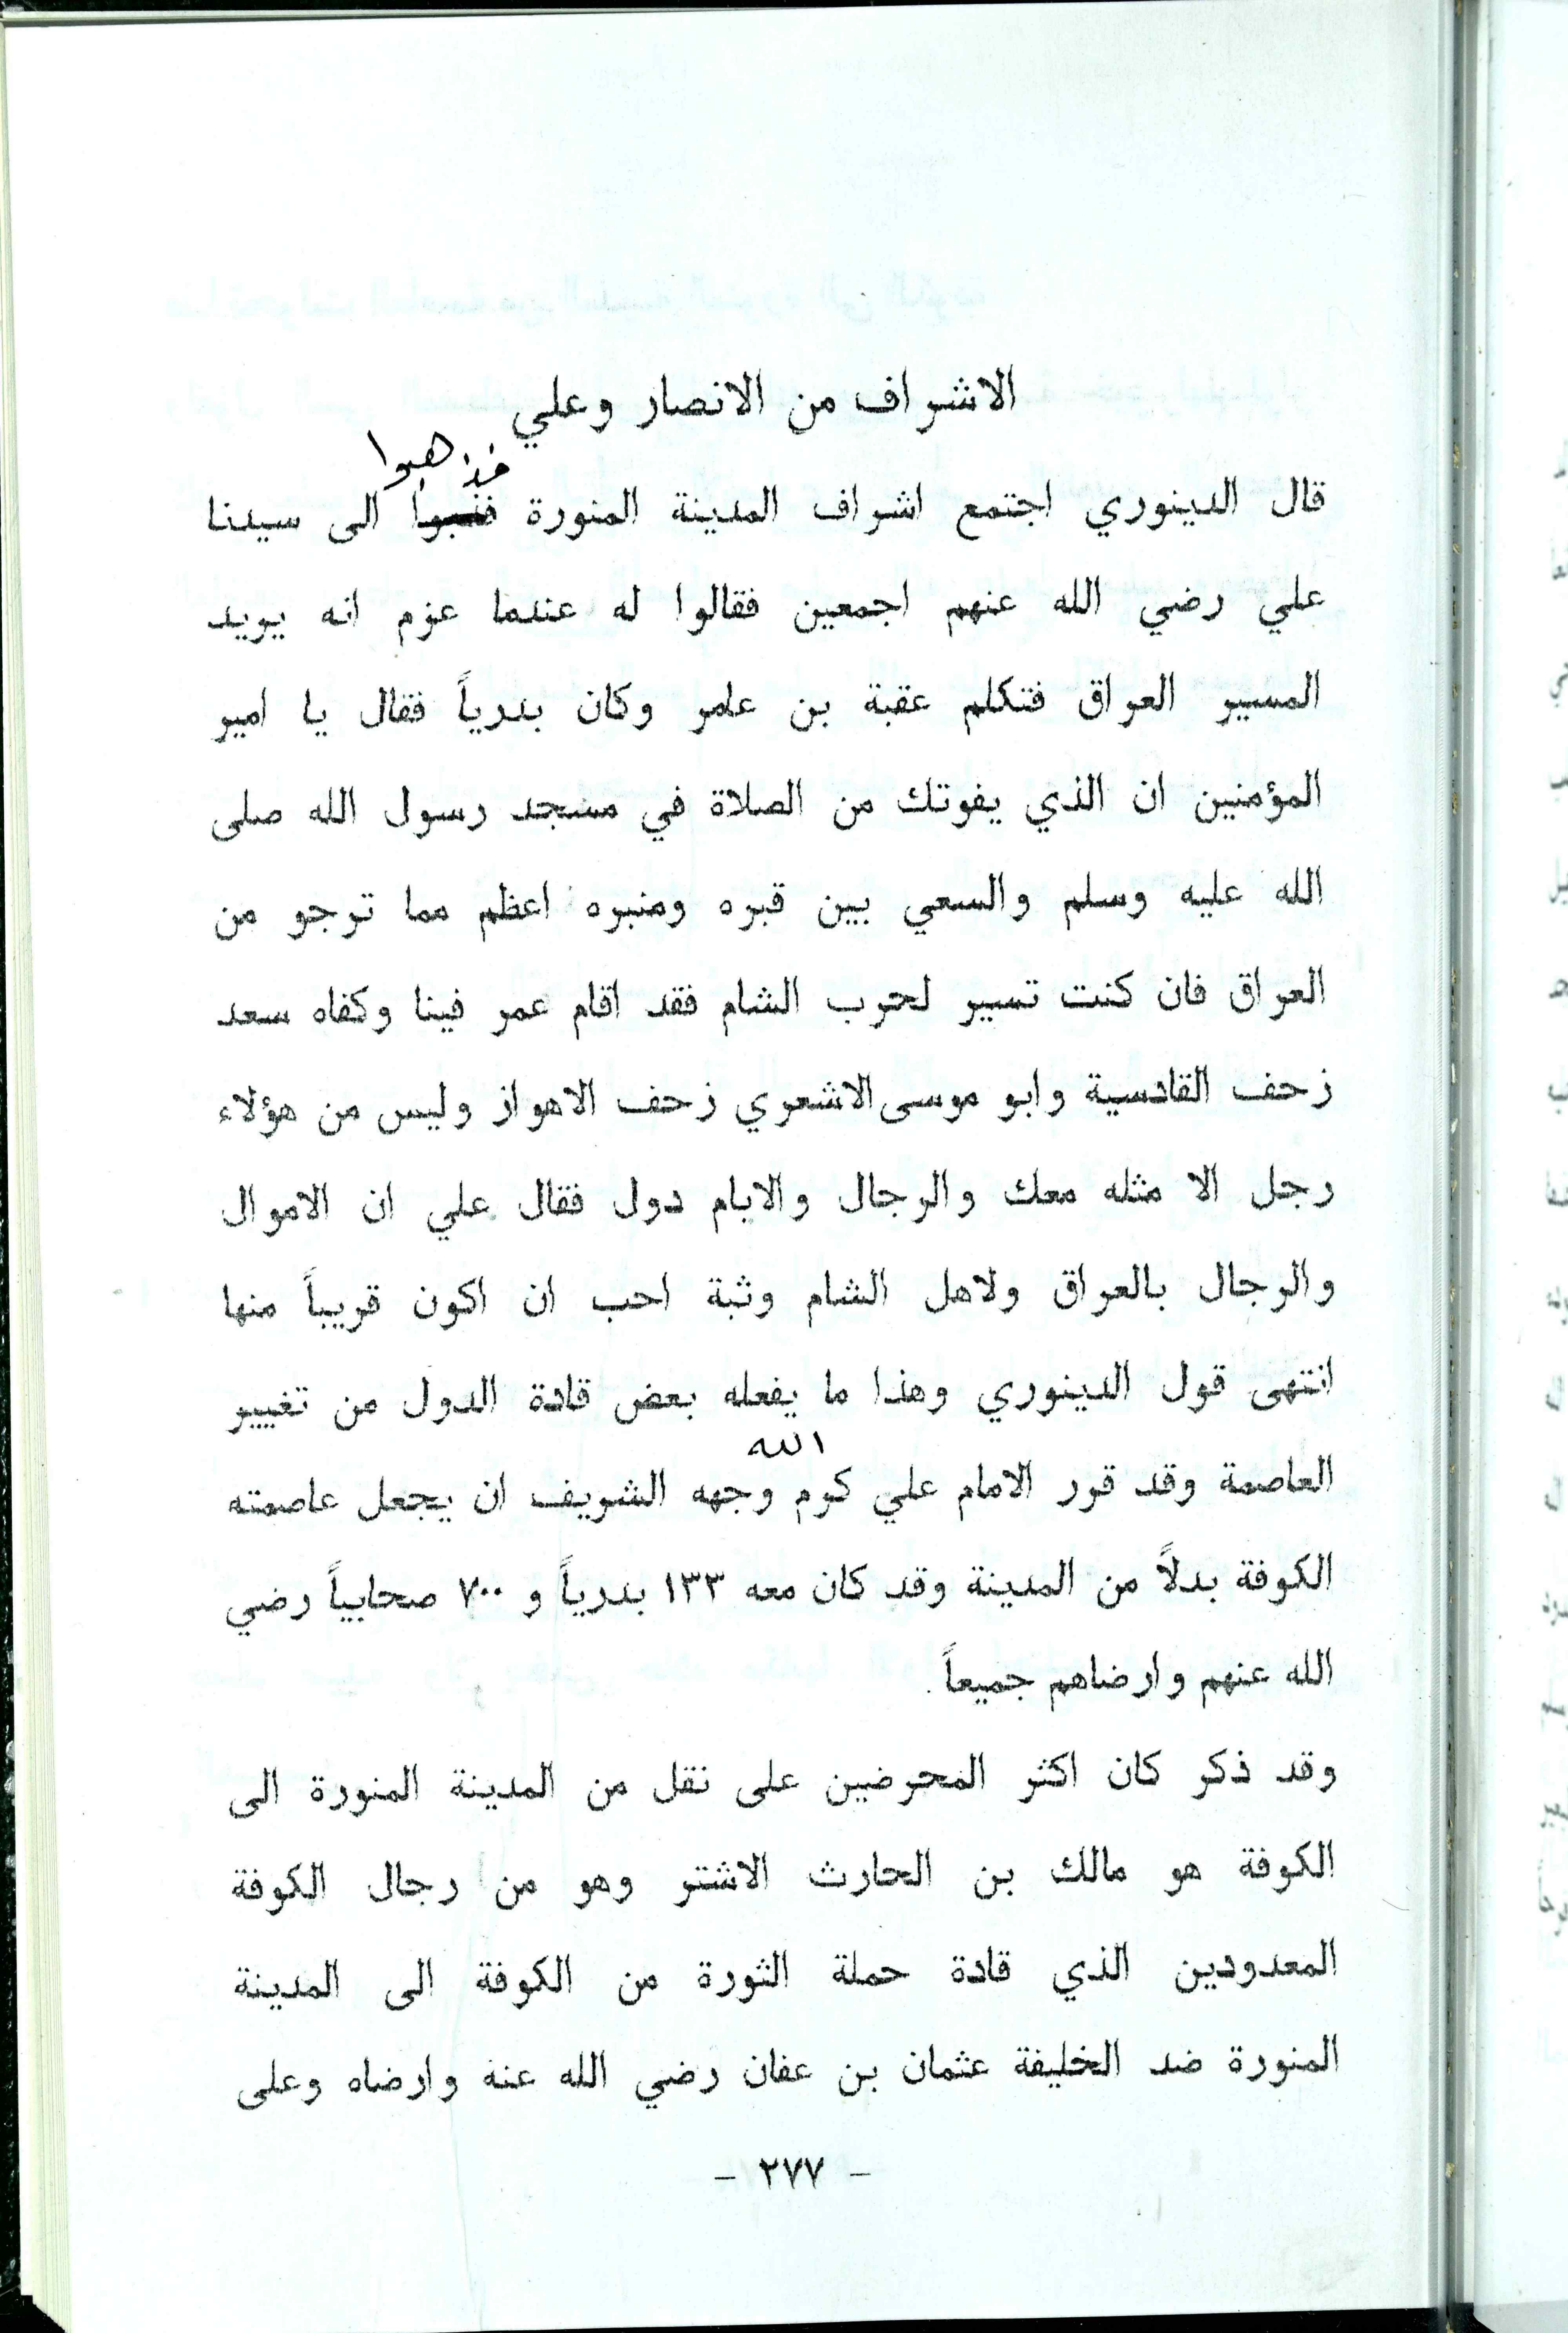 الاشراف من الانصار وعلي
فذهبوا
قال الدينوري اجتمع اشراف المدينة المنورة الى سيدنا
علي رضي الله عنهم اجمعين فقالوا له عندما عزم انه يريد
المسير العراق فتكلم عقبة بن عامر وكان بدرياً فقال يا امير
المؤمنين ان الذي يفوتك من الصلاة في مسجد رسول الله صلى
الله عليه وسلم والسعي بين قبره ومنبره اعظم مما ترجو من
العراق فان كنت تسير لحرب الشام فقد اقام عمر فينا وكفاه سعد
زحف القادسية وابو موسى الاشعري زحف الاهواز وليس من هؤلاء
رجل الا مثله معك والرجال والايام دول فقال علي ان الاموال
والرجال بالعراق ولاهل الشام وثبة احب ان اكون قريباً منها
انتهى قول الدينوري وهذا ما يفعله بعض قادة الدول من تغيير
الله
العاصمة وقد قرر الامام علي كرم وجهه الشريف ان يجعل عاصمته
الكوفة بدلاً من المدينة وقد كان معه ١٣٣ بدرياً و ٧٠٠ صحابياً رضي
الله عنهم وارضاهم جميعاً.
وقد ذكر كان اكثر المحرضين على نقل من المدينة المنورة الى
الكوفة هو مالك بن الحارث الاشتر وهو من رجال الكوفة
المعدودين الذي قادة حملة الثورة من الكوفة الى المدينة
المنورة ضد الخليفة عثمان بن عفان رضي الله عنه وارضاه وعلى
- ٢٧٧ -